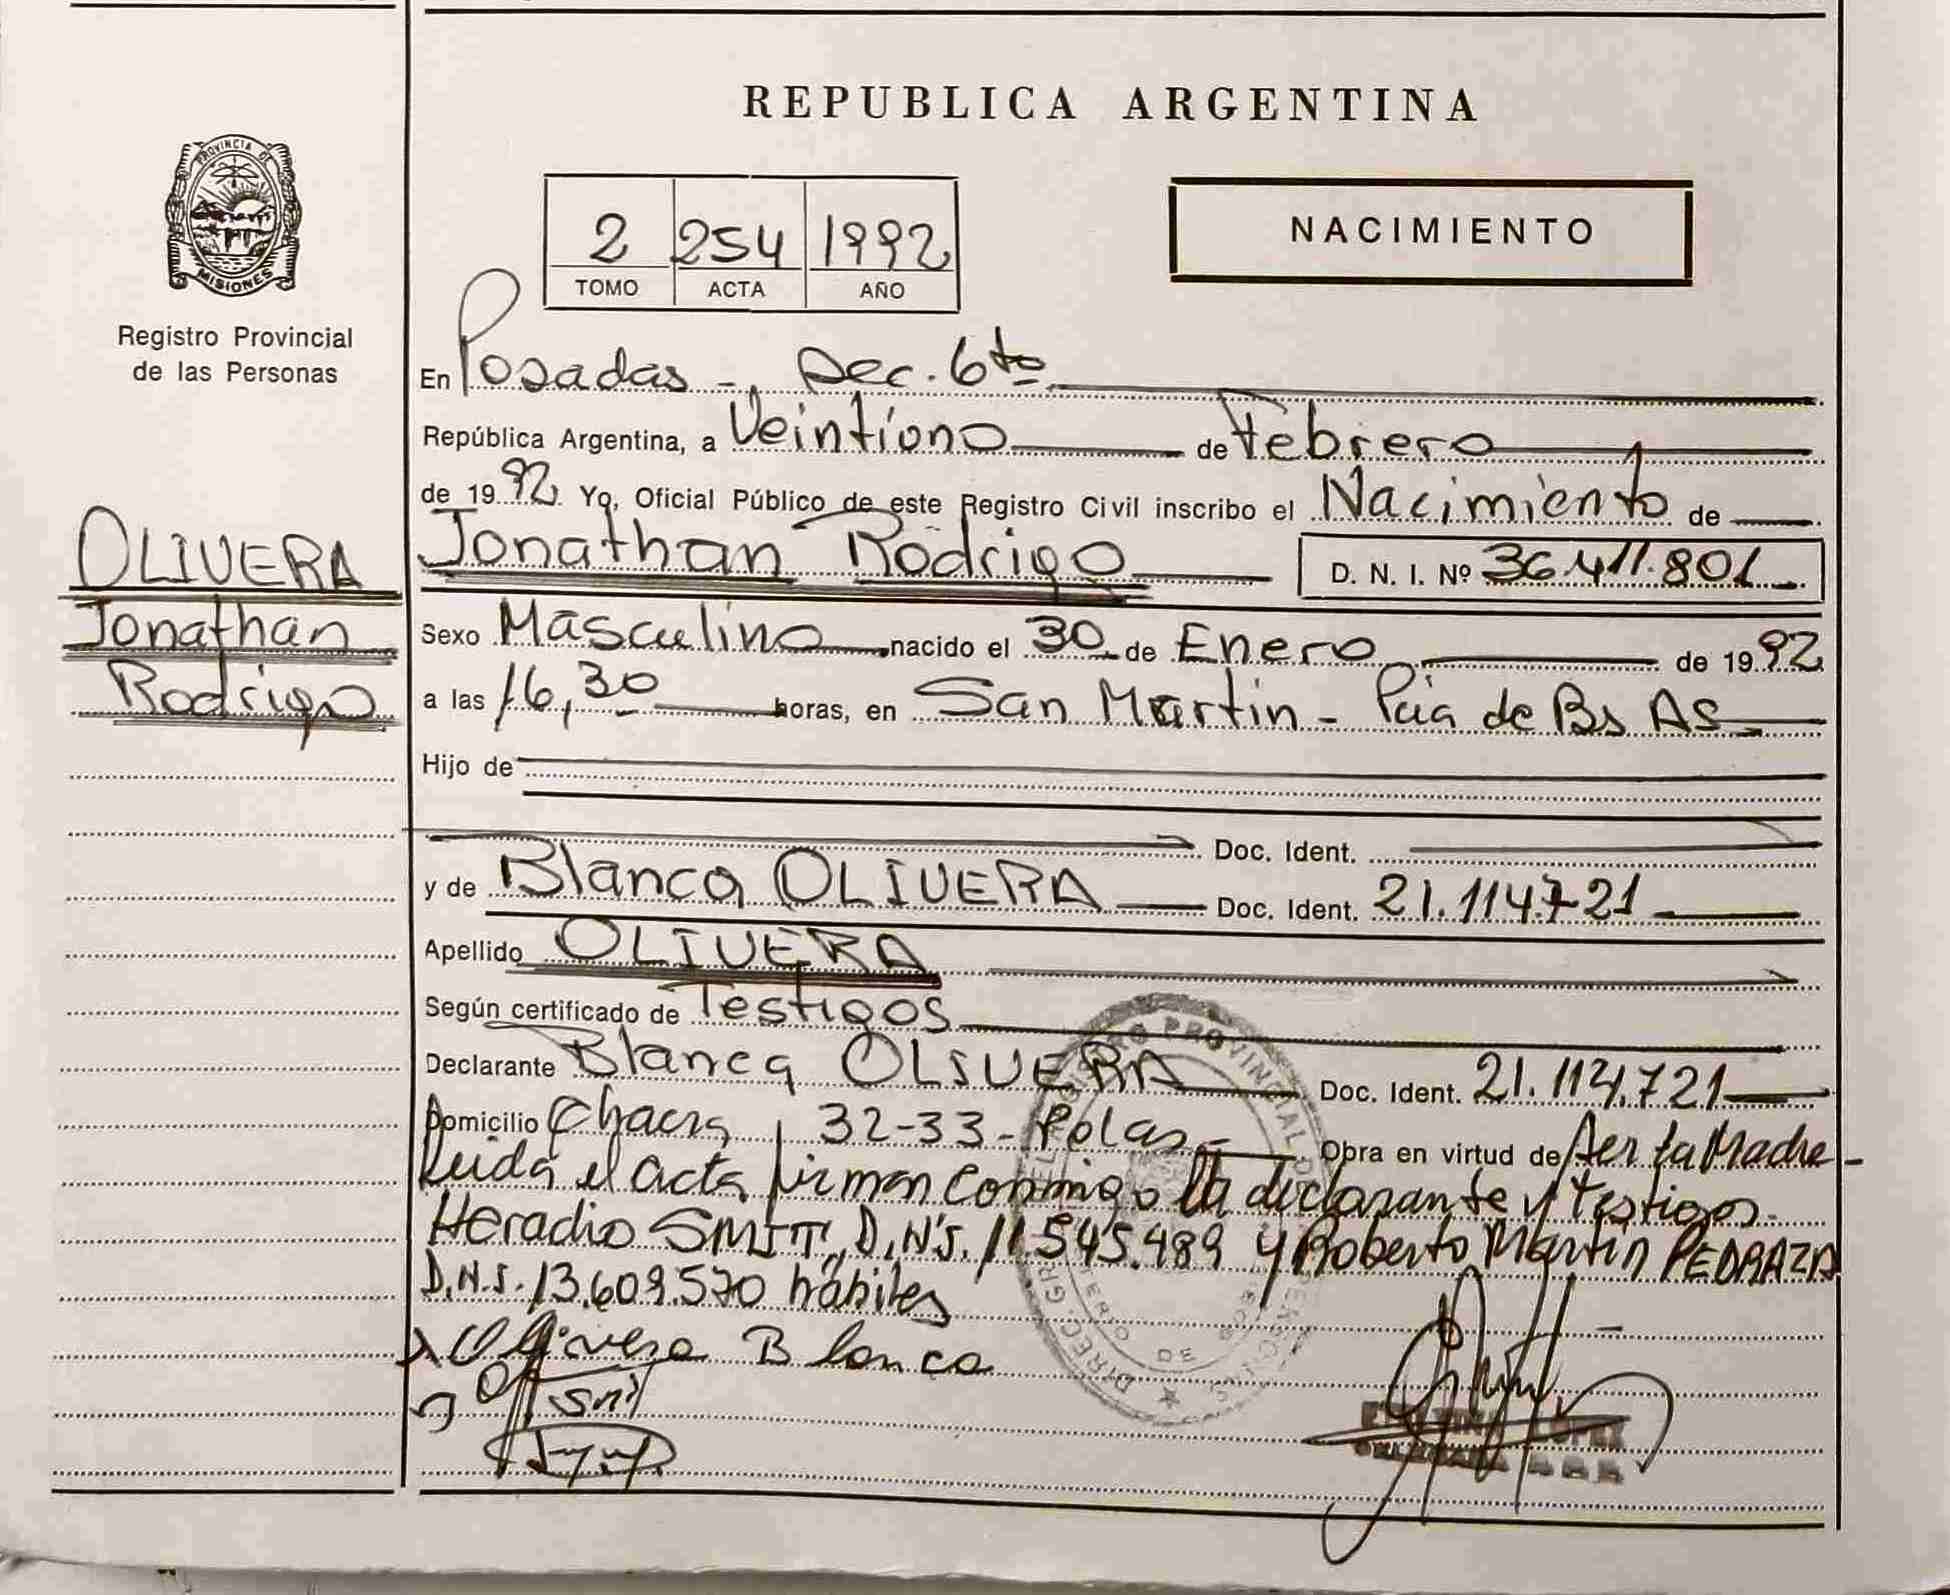 REPUBLICA ARGENTINA
PROVINCIA DE
MISIONES
Registro Provincial
de las Personas
2 254 1992
TOMO ACTA AÑO
NACIMIENTO
En Posadas -, Sec. 6ta
República Argentina, a Veintiuno de Febrero
de 1992 Yo, Oficial Público de este Registro Civil inscribo el Nacimiento de
Jonathan Rodrigo D. N. I. Nº 36.411.801
OLIVERA
Jonathan
Rodrigo
Sexo Masculino nacido el 30 de Enero de 1992
a las 16,30 horas, en San Martin - Pcia de Bs As
Hijo de
Doc. Ident.
y de Blanca OLIVERA Doc. Ident. 21.114.721
Apellido OLIVERA
Según certificado de Testigos
Declarante Blanca OLIVERA Doc. Ident. 21.114.721
Domicilio Chacra 32-33 - Pdas - Obra en virtud de Ser la Madre -
Leida el acta firman conmigo la declarante y testigos
Heradio SMIT, D.N.I. 11.545.489 y Roberto Martin PEDRAZA
D.N.I. 13.609.570 hábiles
Olivera Blanca